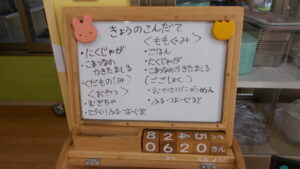 きょうのこんだて
・にくじゃが
・こまつなの
かきたまじる
<くだもの(みし)
<おやつ>
・むぎちゃ
<ももぐみ>
・ごはん
・にくじゃが
・こまつなのかきたまじる
(ごごしょく)
・おやさいにゅうめん
・ふるーつよーぐると
8 2 4 5
0 6 2 0 さん